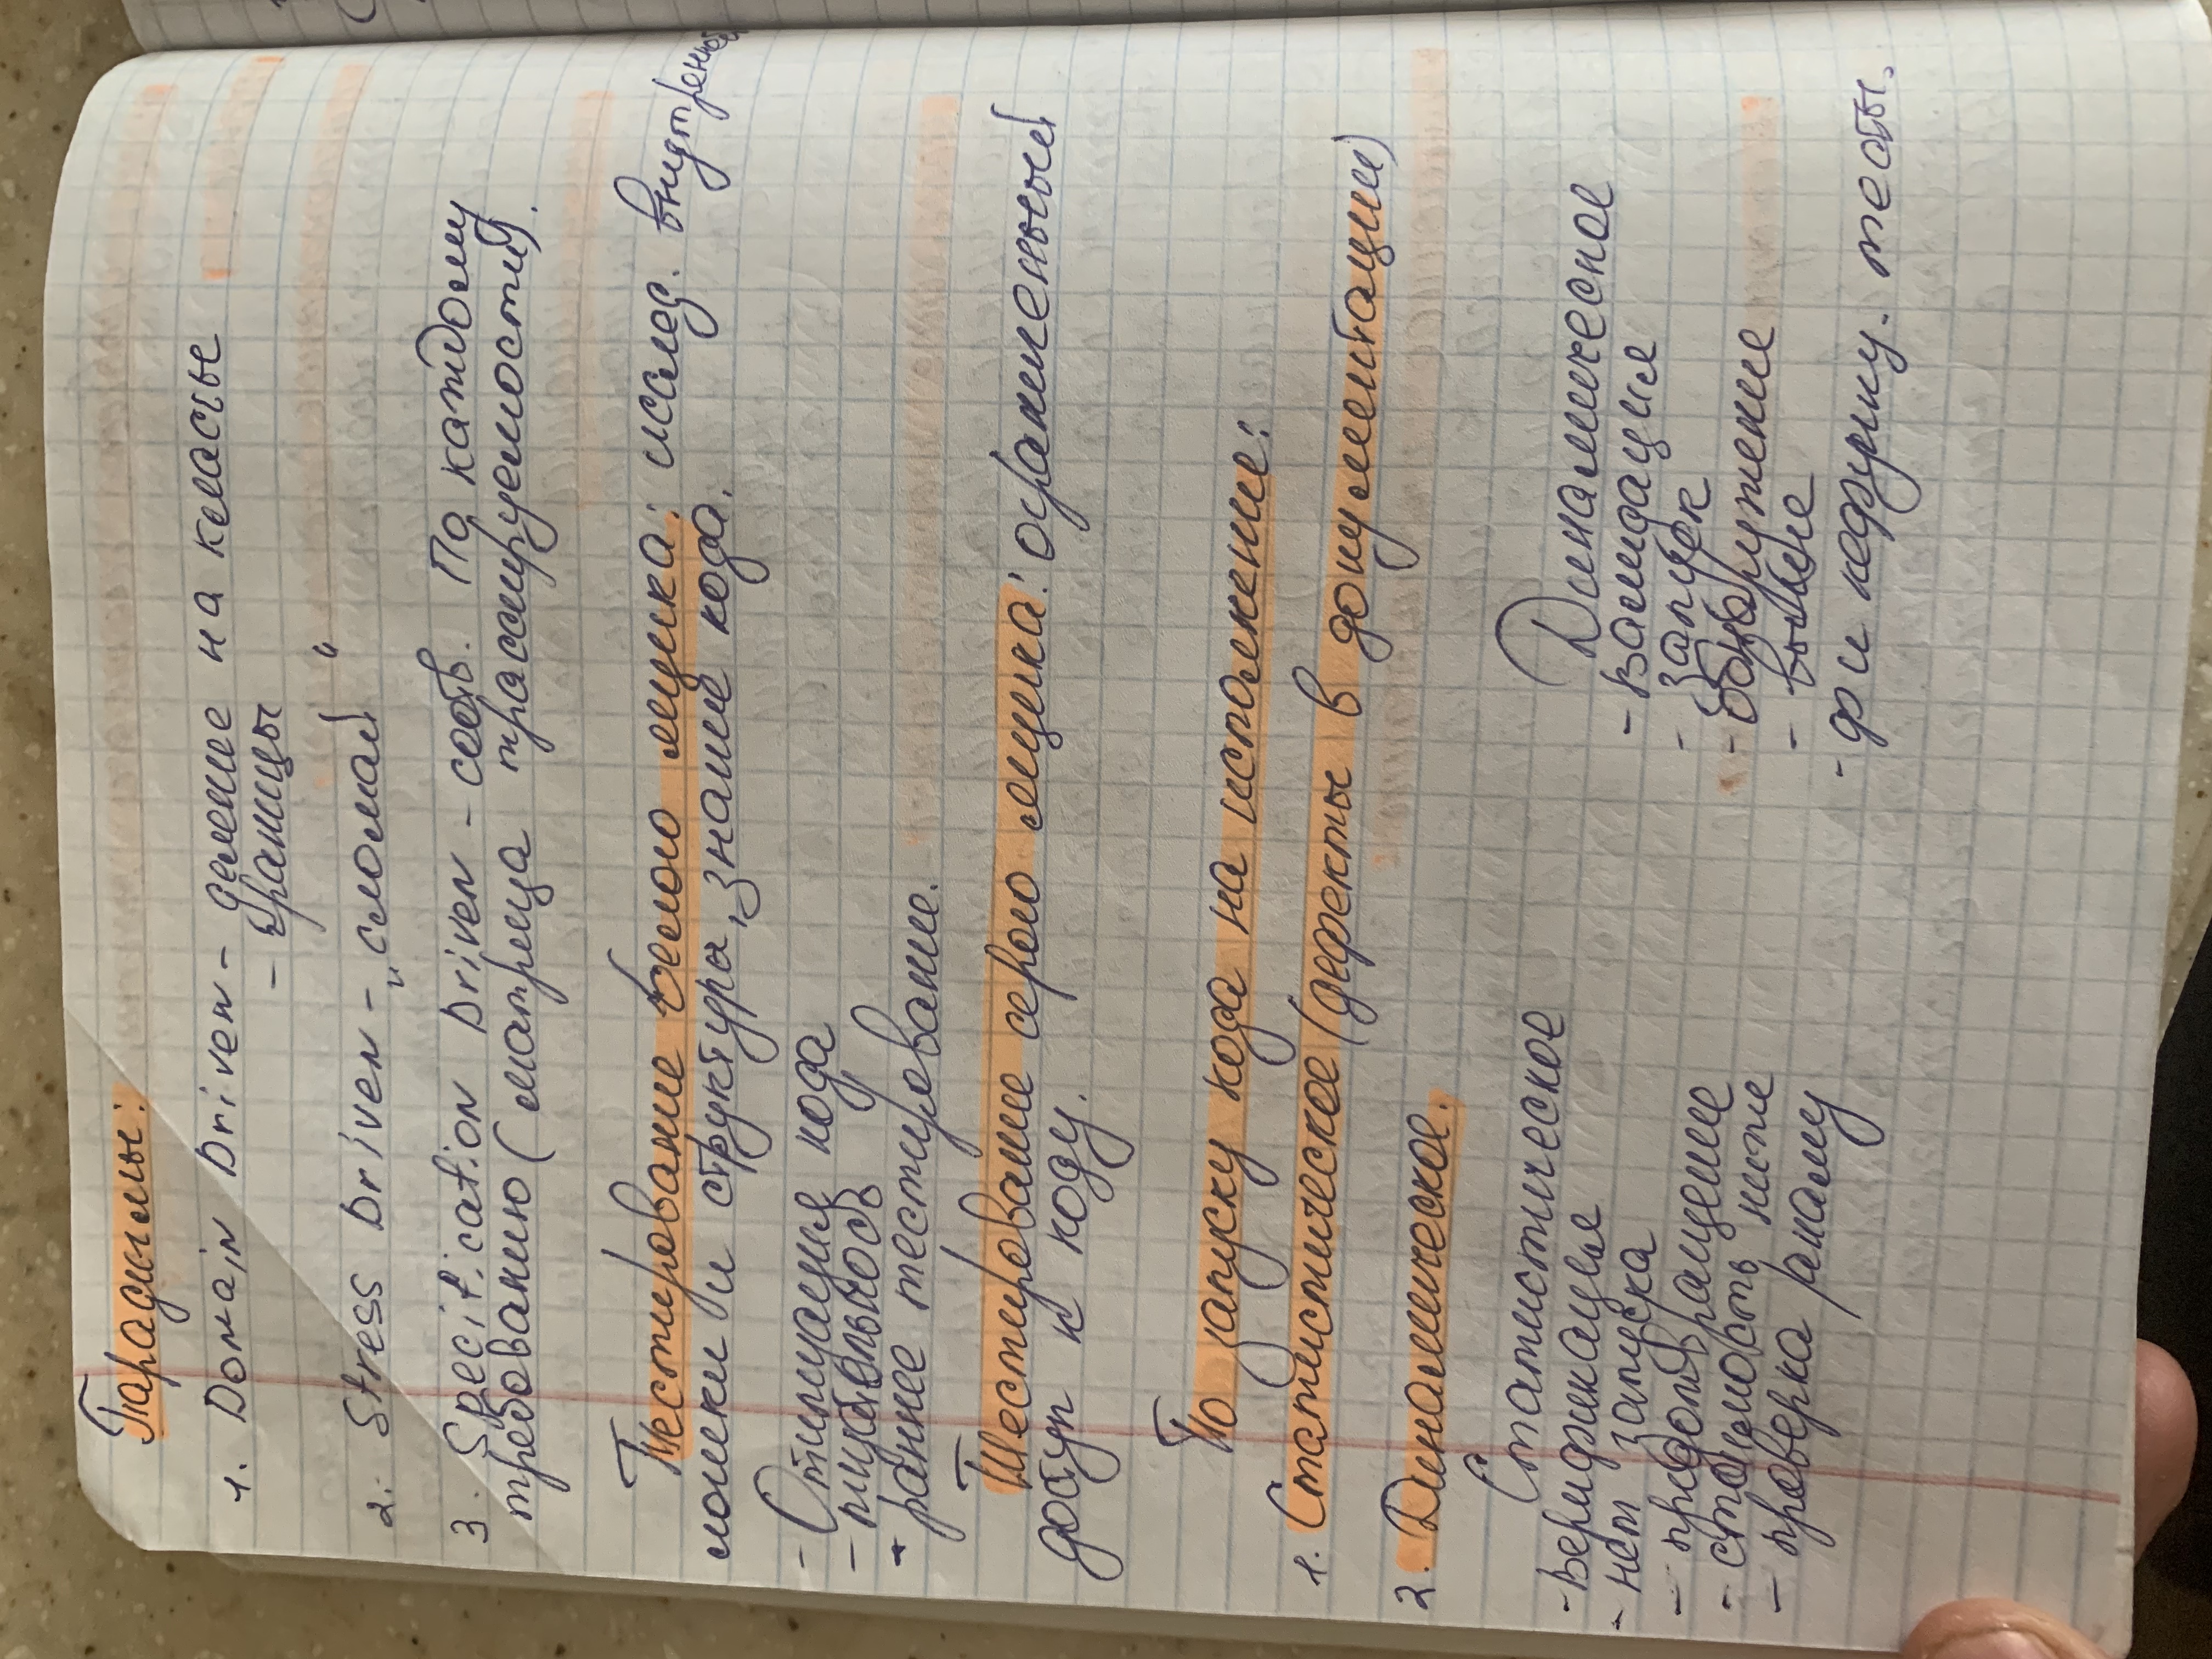 Парадигмы:
1. Domain Driven - деление на классы
- границы
2. Stress Driven - „сломай“
3. Specification Driven - соотв. По каждому
требованию (матрица трассируемости).
Тестирование белого ящика: исслед. внутренней
логики и структура, знание кода.
- Оптимизация кода
- тщательность
- раннее тестирование.
Тестирование серого ящика: ограниченный
доступ к коду.
По запуску кода на исполнение:
1. Статистическое (дефекты в документации)
2. Динамическое.
Статистическое
- верификация
- нет запуска
- предотвращение
- стоимость ниже
- проверка /анализ
Динамическое
- валидация
- запуск
- обнаружение
- выше
- ф и нефункц. тесты.